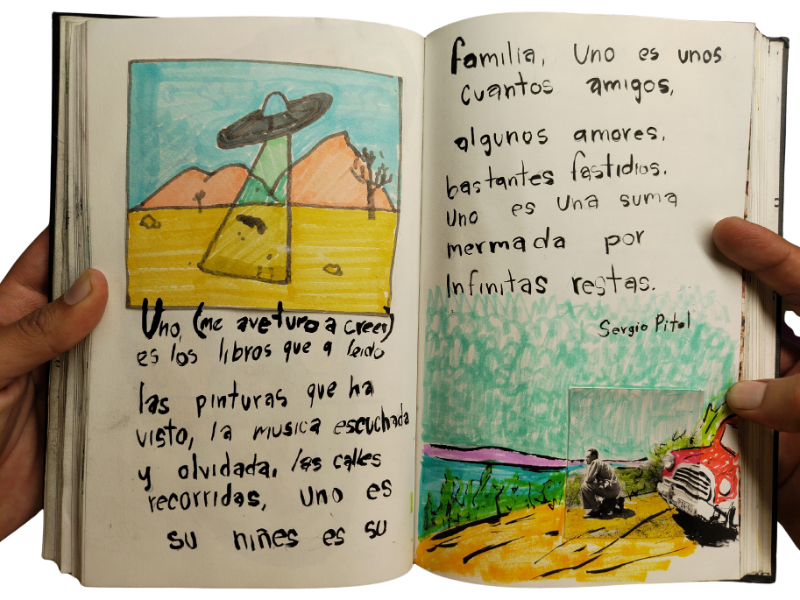 Uno, (me aveturo a creer)
es los libros que a leido
las pinturas que ha
visto, la musica escuchada
y olvidada, las calles
recorridas, uno es
su niñes es su
familia, Uno es unos
cuantos amigos,
algunos amores,
bastantes fastidios.
Uno es una suma
mermada por
Infinitas restas.
Sergio Pitol